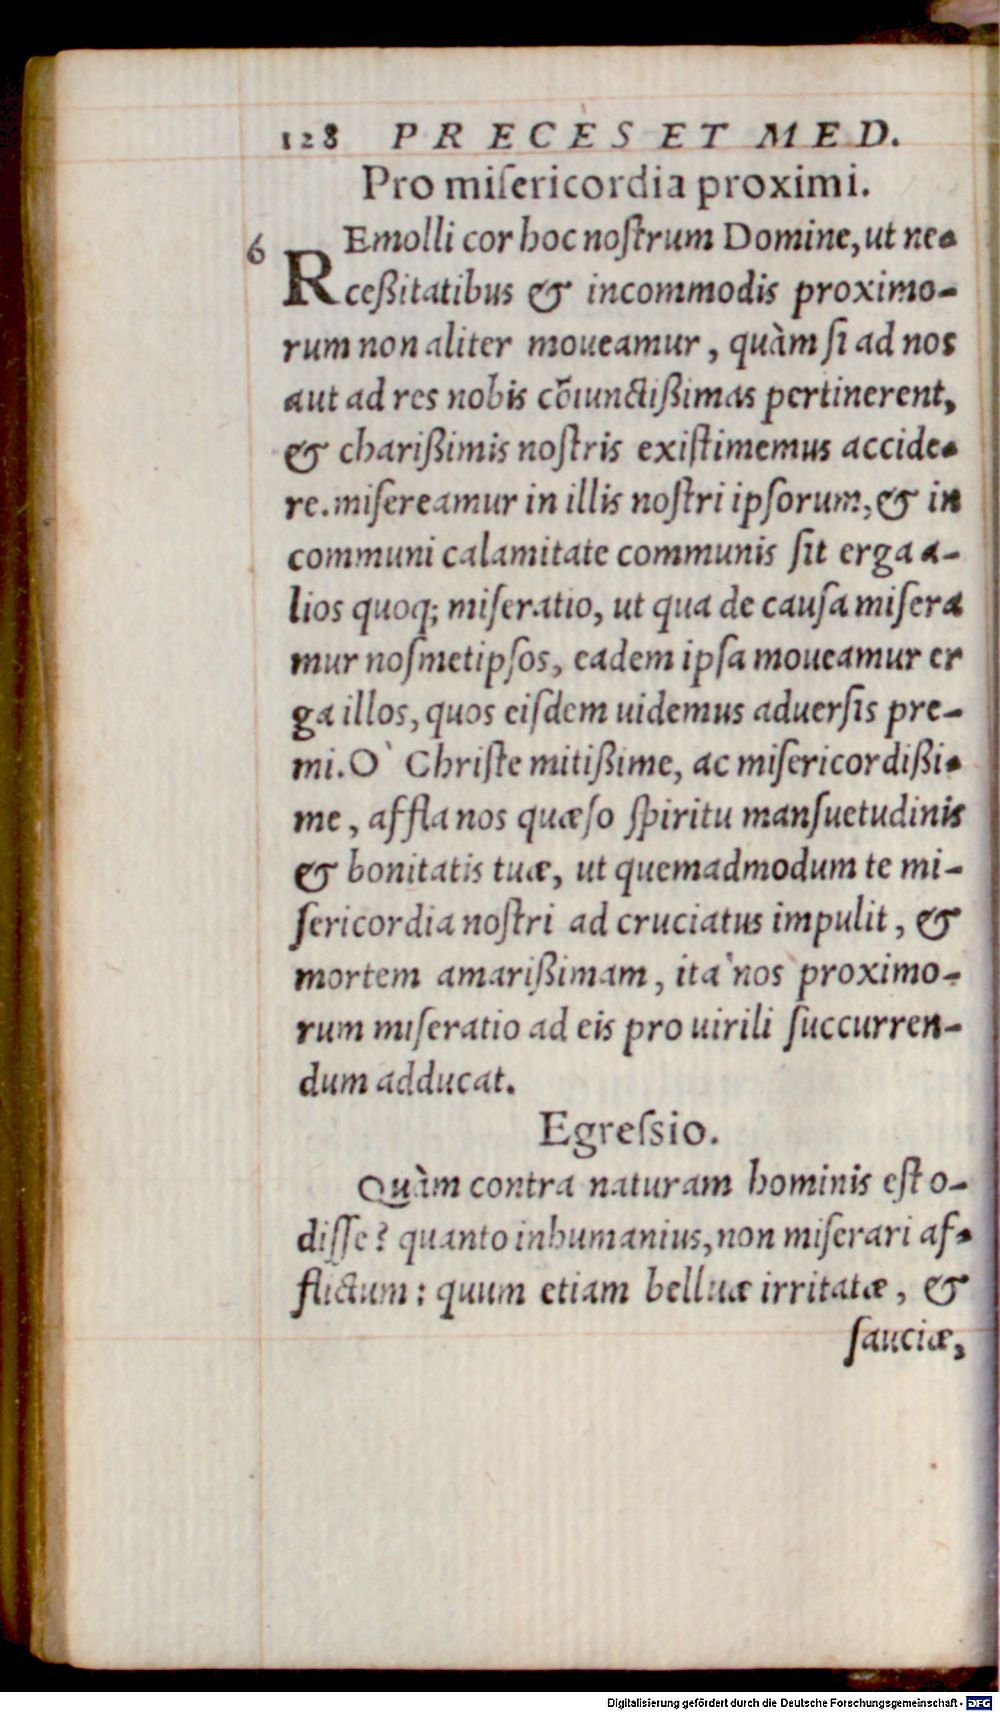 128 PRECES ET MED.
Pro miſericordia proximi.
6 REmolli cor hoc noſtrum Domine, ut ne-
ceßitatibus & incommodis proximo-
rum non aliter moueamur, quàm ſi ad nos
aut ad res nobis cõiunctißimas pertinerent,
& charißimis noſtris exiſtimemus accide-
re. miſereamur in illis noſtri ipſorum, & in
communi calamitate communis ſit erga a-
lios quoq; miſeratio, ut qua de cauſa miſera
mur noſmetipſos, eadem ipſa moueamur er
ga illos, quos eiſdem uidemus aduerſis pre-
mi. O` Chriſte mitißime, ac miſericordißi-
me, affla nos quæſo ſpiritu manſuetudinis
& bonitatis tuæ, ut quemadmodum te mi-
ſericordia noſtri ad cruciatus impulit, &
mortem amarißimam, ita nos proximo-
rum miſeratio ad eis pro uirili ſuccurren-
dum adducat.
Egreſsio.
Quàm contra naturam hominis eſt o-
diſſe? quanto inhumanius, non miſerari af-
flictum: quum etiam belluæ irritatæ, &
ſauciæ,
Digitalisierung gefördert durch die Deutsche Forschungsgemeinschaft - DFG